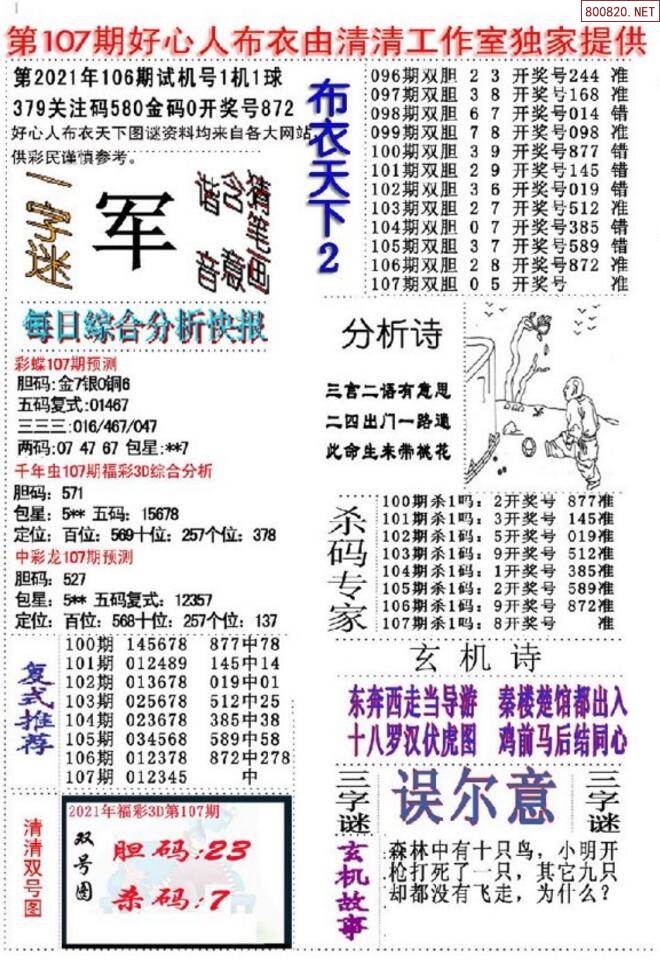 800820.NET
第107期好心人布衣由清清工作室独家提供
第2021年106期试机号1机1球
379关注码580金码0开奖号872
好心人布衣天下图谜资料均来自各大网站,
供彩民谨慎参考。
一字谜
军
猜笔画
含意
谐音
布衣天下2
096期双胆 2 3 开奖号244 准
097期双胆 3 8 开奖号168 准
098期双胆 6 7 开奖号014 错
099期双胆 7 8 开奖号098 准
100期双胆 3 9 开奖号877 错
101期双胆 2 9 开奖号145 错
102期双胆 3 6 开奖号019 错
103期双胆 2 7 开奖号512 准
104期双胆 0 7 开奖号385 错
105期双胆 3 7 开奖号589 错
106期双胆 2 8 开奖号872 准
107期双胆 0 5 开奖号 准
每日综合分析快报
彩蝶107期预测
胆码:金7银0铜6
五码复式:01467
三三三:016/467/047
两码:07 47 67 包星:**7
千年虫107期福彩3D综合分析
胆码：571
包星：5** 五码：15678
定位：百位：569十位：257个位：378
中彩龙107期预测
胆码：527
包星：5** 五码复式：12357
定位：百位：568十位：257个位：137
分析诗
三言二语有意思
二四出门一路遥
此命生来带桃花
杀码专家
100期杀1吗：2开奖号 877准
101期杀1吗：3开奖号 145准
102期杀1码：5开奖号 019准
103期杀1码：9开奖号 512准
104期杀1码：1开奖号 385准
105期杀1码：2开奖号 589准
106期杀1码：9开奖号 872准
107期杀1码：8开奖号 准
复式推荐
100期 145678 877中78
101期 012489 145中14
102期 013678 019中01
103期 025678 512中25
104期 023678 385中38
105期 034568 589中58
106期 012378 872中278
107期 012345 中
玄机诗
东奔西走当导游 秦楼楚馆都出入
十八罗汉伏虎图 鸡前马后结同心
三字谜
误尔意
三字谜
清清双号图
2021年福彩3D第107期
双号图
胆码:23
杀码:7
玄机故事
森林中有十只鸟，小明开
枪打死了一只，其它九只
却都没有飞走，为什么？